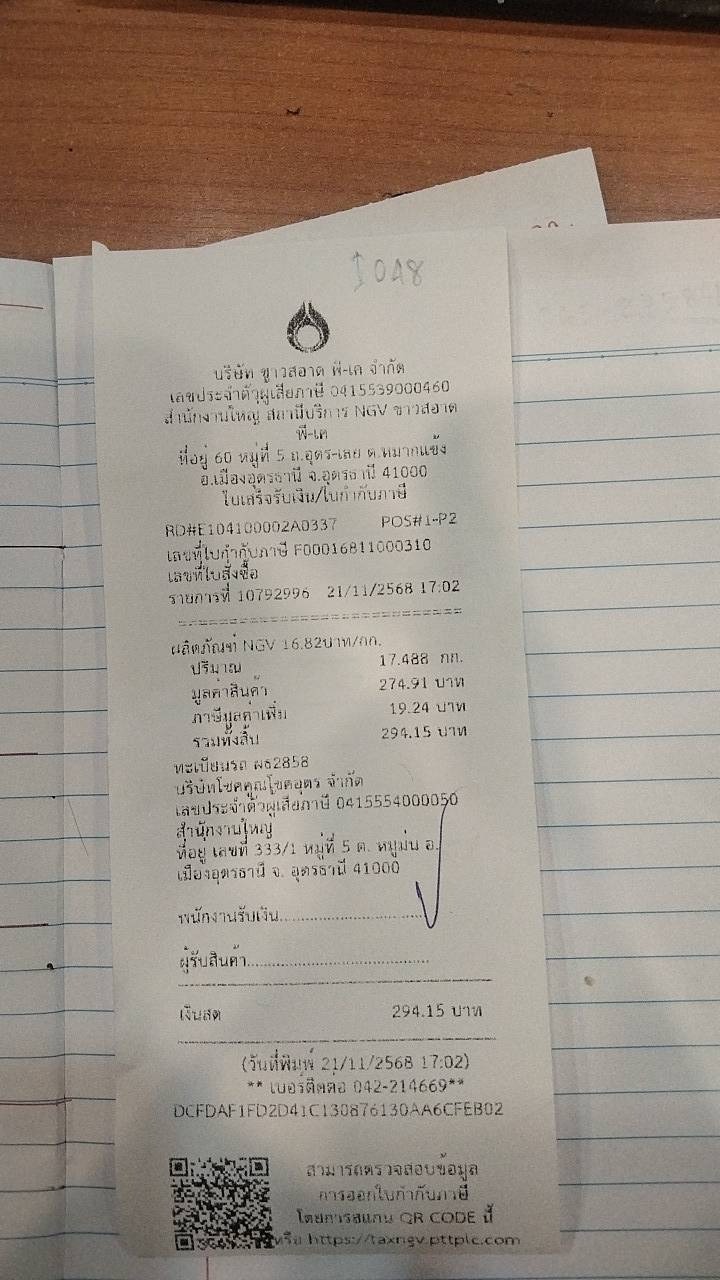 048
บริษัท ขาวสอาด พี-เค จำกัด
เลขประจำตัวผู้เสียภาษี 0415539000460
สำนักงานใหญ่ สถานีบริการ NGV ขาวสอาด
พี-เค
ที่อยู่ 60 หมู่ที่ 5 ถ.อุดร-เลย ต.หมากแข้ง
อ.เมืองอุดรธานี จ.อุดรธานี 41000
ใบเสร็จรับเงิน/ใบกำกับภาษี
RD#E104100002A0337 POS#1-P2
เลขที่ใบกำกับภาษี F00016811000310
เลขที่ใบสั่งซื้อ
รายการที่ 10792996 21/11/2568 17:02
================================
ผลิตภัณฑ์ NGV 16.82บาท/กก.
ปริมาณ 17.488 กก.
มูลค่าสินค้า 274.91 บาท
ภาษีมูลค่าเพิ่ม 19.24 บาท
รวมทั้งสิ้น 294.15 บาท
ทะเบียนรถ ผธ2858
บริษัทโชคคูณโชคอุดร จำกัด
เลขประจำตัวผู้เสียภาษี 0415554000050
สำนักงานใหญ่
ที่อยู่ เลขที่ 333/1 หมู่ที่ 5 ต. หมูม่น อ.
เมืองอุดรธานี จ. อุดรธานี 41000
พนักงานรับเงิน..............................
ผู้รับสินค้า........................................
เงินสด 294.15 บาท
(วันที่พิมพ์ 21/11/2568 17:02)
** เบอร์ติดต่อ 042-214669**
DCFDAF1FD2D41C130876130AA6CFEB02
สามารถตรวจสอบข้อมูล
การออกใบกำกับภาษี
โดยการสแกน QR CODE นี้
หรือ https://taxngv.pttplc.com